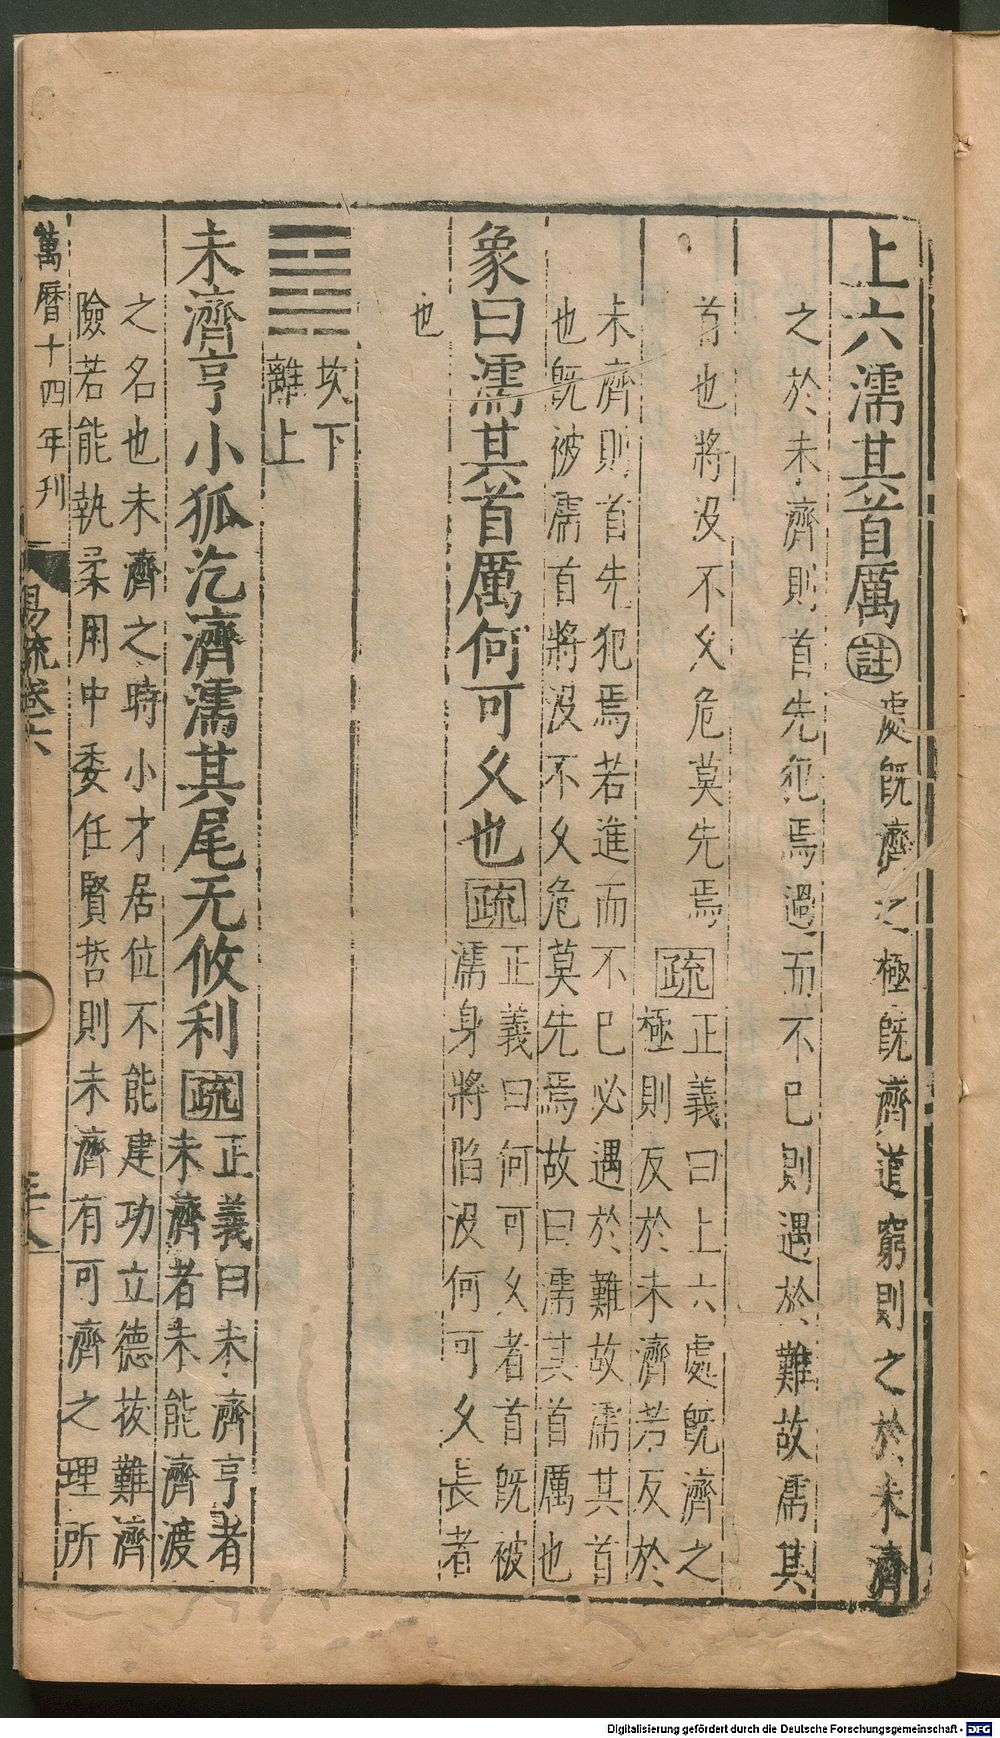 上六濡其首厲註處旣濟之極旣濟道窮則之於未濟
之於未濟則首先犯焉過而不已則遇於難故濡其
首也將沒不久危莫先焉疏正義曰上六處旣濟之
極則反於未濟若反於
未濟則首先犯焉若進而不已必遇於難故濡其首
也旣被濡首將沒不久危莫先焉故曰濡其首厲也
象曰濡其首厲何可久也疏正義曰何可久者首旣被
濡身將陷沒何可久長者
也
坎下
離上
未濟亨小狐汔濟濡其尾无攸利疏正義曰未濟亨者
未濟者未能濟渡
之名也未濟之時小才居位不能建功立德拔難濟
險若能執柔用中委任賢哲則未濟有可濟之理所
萬曆十四年刊
易疏卷六
Digitalisierung gefördert durch die Deutsche Forschungsgemeinschaft - DFG